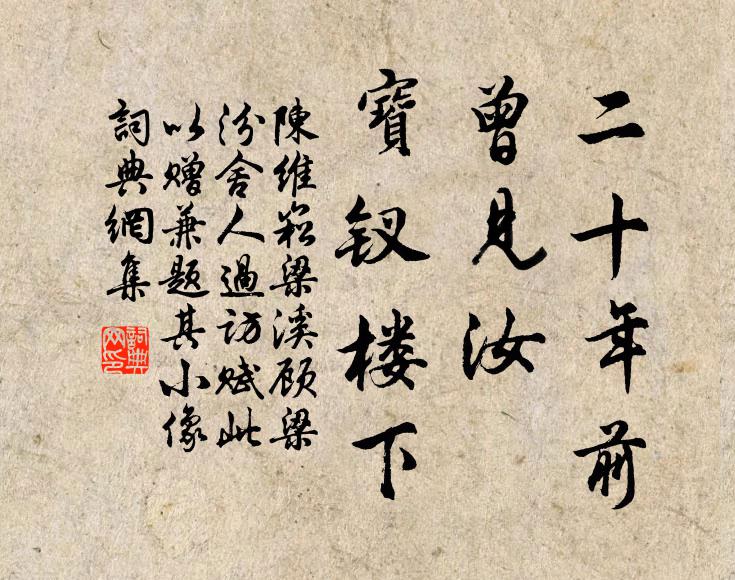 二十年前
曾见汝
寶钗楼下
陳维崧梁溪顾梁
汾舍人過访赋此
以赠兼题其小像
詞典網集
詞典网印